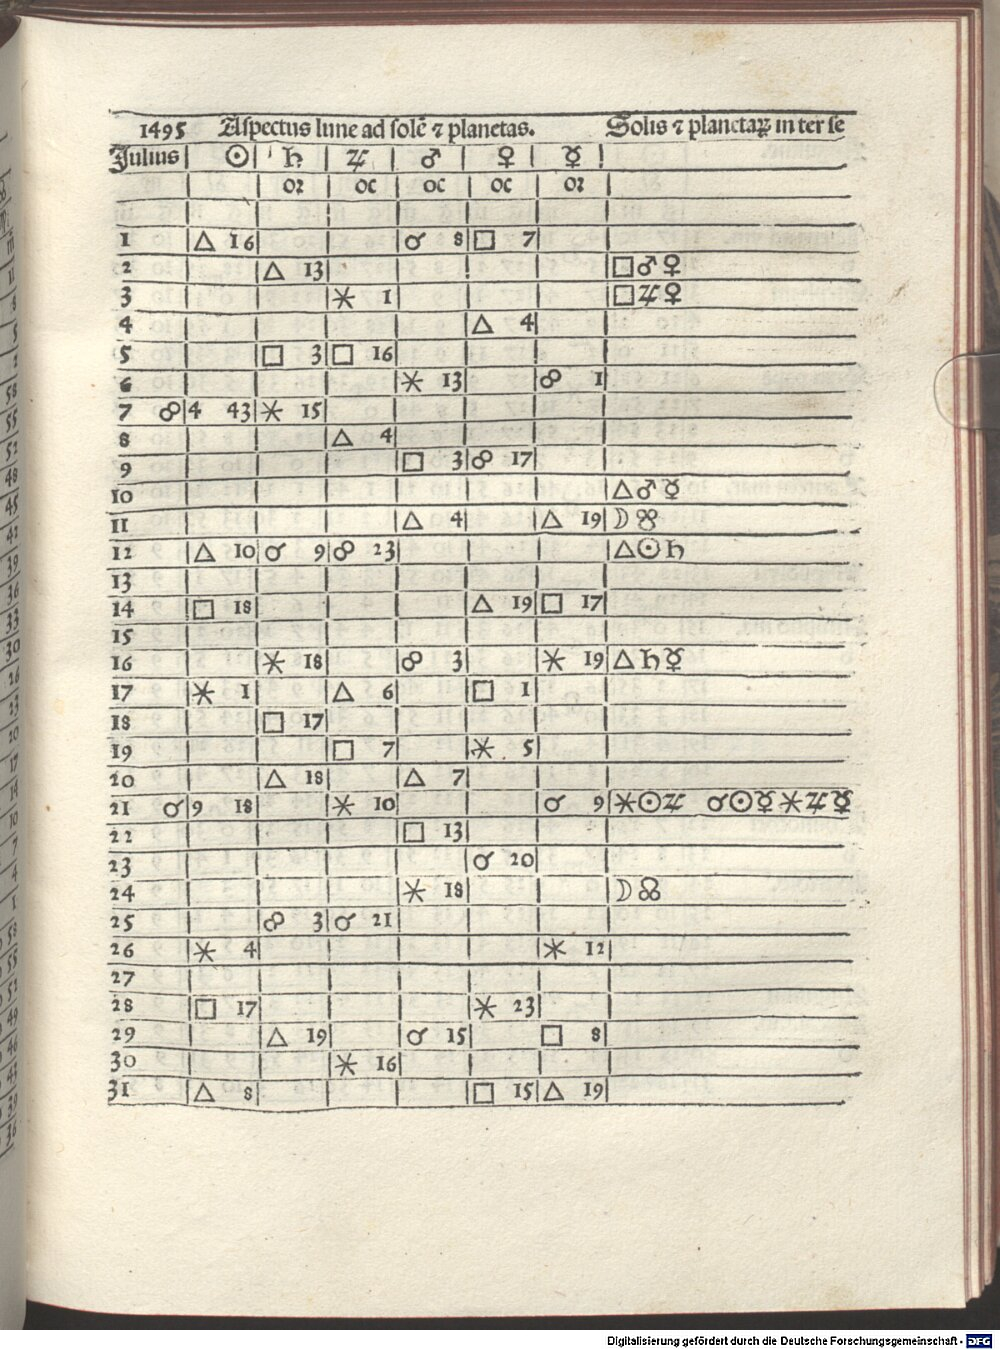 1495 Aspectus lune ad solē ⁊ planetas. Solis ⁊ planetaꝝ inter se
Julius ☉ ♄ ♃ ♂ ♀ ☿
oꝛ oc oc oc oꝛ
1 △ 16 ☌ 8 □ 7
2 △ 13 □♂♀
3 ⚹ 1 □♃♀
4 △ 4
5 □ 3 □ 16
6 ⚹ 13 ☍ 1
7 ☍ 4 43 ⚹ 15
8 △ 4
9 □ 3 ☍ 17
10 △♂☿
11 △ 4 △ 19 ☽☊
12 △ 10 ☌ 9 ☍ 23 △☉♄
13
14 □ 18 △ 19 □ 17
15
16 ⚹ 18 ☍ 3 ⚹ 19 △♄☿
17 ⚹ 1 △ 6 □ 1
18 □ 17
19 □ 7 ⚹ 5
20 △ 18 △ 7
21 ☌ 9 18 ⚹ 10 ☌ 9 ⚹☉♃ ☌☉☿ ⚹♃☿
22 □ 13
23 ☌ 20
24 ⚹ 18 ☽☋
25 ☍ 3 ☌ 21
26 ⚹ 4 ⚹ 12
27
28 □ 17 ⚹ 23
29 △ 19 ☌ 15 □ 8
30 ⚹ 16
31 △ 8 □ 15 △ 19
Digitalisierung gefördert durch die Deutsche Forschungsgemeinschaft - DFG